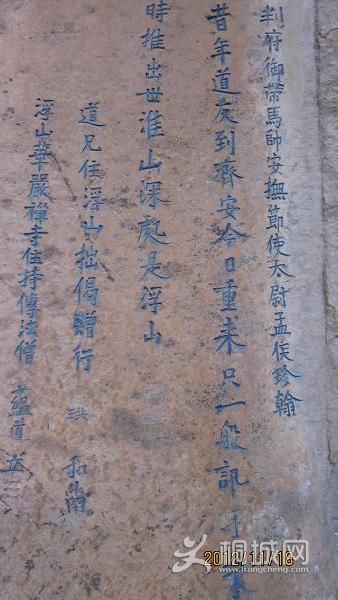 判府御帶馬帥安撫節使太尉孟侯珍翰
昔年道友到齊安今日重來只一般訊
時推出世淮山深處是浮山
道兄住浮山拙偈贈行 珙
浮山華嚴禪寺住持傳法僧 蘊道
2012/11/18
桐城网
www.itongcheng.com